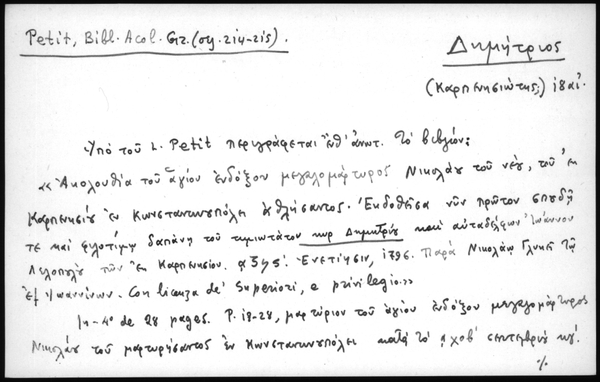 Petit, Bibl. Acol. Gr. (σγ. 214-215).
Δημήτριος
(Καρπενησιώτης;) 18 αἰ.
Ὑπὸ τοῦ L. Petit περιγράφεται ἐνθ' ἀνωτ. τὸ βιβλίον:
«Ἀκολουθία τοῦ ἁγίου ἐνδόξου μεγαλομάρτυρος Νικολάου τοῦ νέου, τοῦ ἐκ
Καρπενησίου ἐν Κωνσταντινουπόλει ἀθλήσαντος. Ἐκδοθεῖσα νῦν πρῶτον σπουδῇ
τε καὶ φιλοτίμῳ δαπάνῃ τοῦ τιμιωτάτου κυρ Δημητρίου καὶ αὐταδέλφων Ἰωάννου
τῶν ἐκ Καρπενησίου. Ἐνετίησιν, 1796. Παρὰ Νικολάῳ Γλυκεῖ τῷ
ἐξ Ἰωαννίνων. Con licenza de' Superiori, e privilegio.»
In-4° de 28 pages. P. 18-28, μαρτύριον τοῦ ἁγίου ἐνδόξου μεγαλομάρτυρος
Νικολάου τοῦ μαρτυρήσαντος ἐν Κωνσταντινουπόλει κατὰ τὸ ͵αχοβʹ σεπτεμβρίου κγʹ.
%